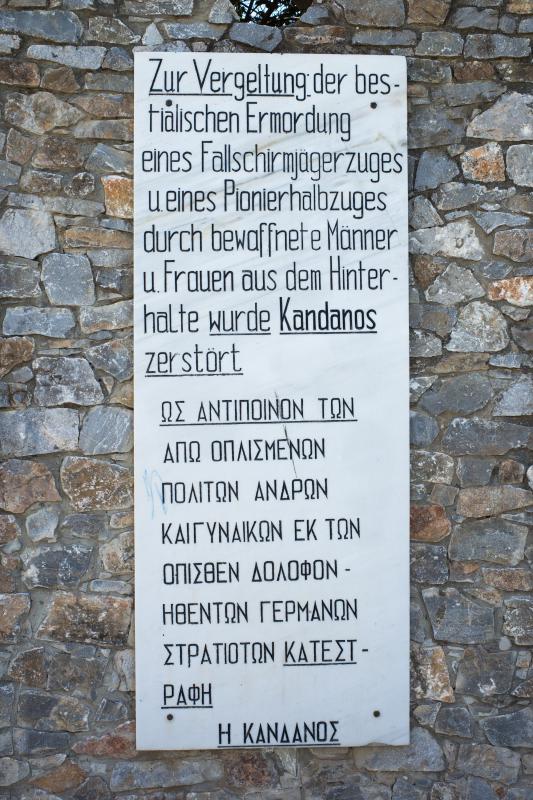 Zur Vergeltung der bes-
tialischen Ermordung
eines Fallschirmjägerzuges
u. eines Pionierhalbzuges
durch bewaffnete Männer
u. Frauen aus dem Hinter-
halte wurde Kandanos
zerstört
ΩΣ ΑΝΤΙΠΟΙΝΟΝ ΤΩΝ
ΑΠΩ ΟΠΛΙΣΜΕΝΩΝ
ΠΟΛΙΤΩΝ ΑΝΔΡΩΝ
ΚΑΙΓΥΝΑΙΚΩΝ ΕΚ ΤΩΝ
ΟΠΙΣΘΕΝ ΔΟΛΟΦΟΝ-
ΗΘΕΝΤΩΝ ΓΕΡΜΑΝΩΝ
ΣΤΡΑΤΙΟΤΩΝ ΚΑΤΕΣΤ-
ΡΑΦΗ
Η ΚΑΝΔΑΝΟΣ